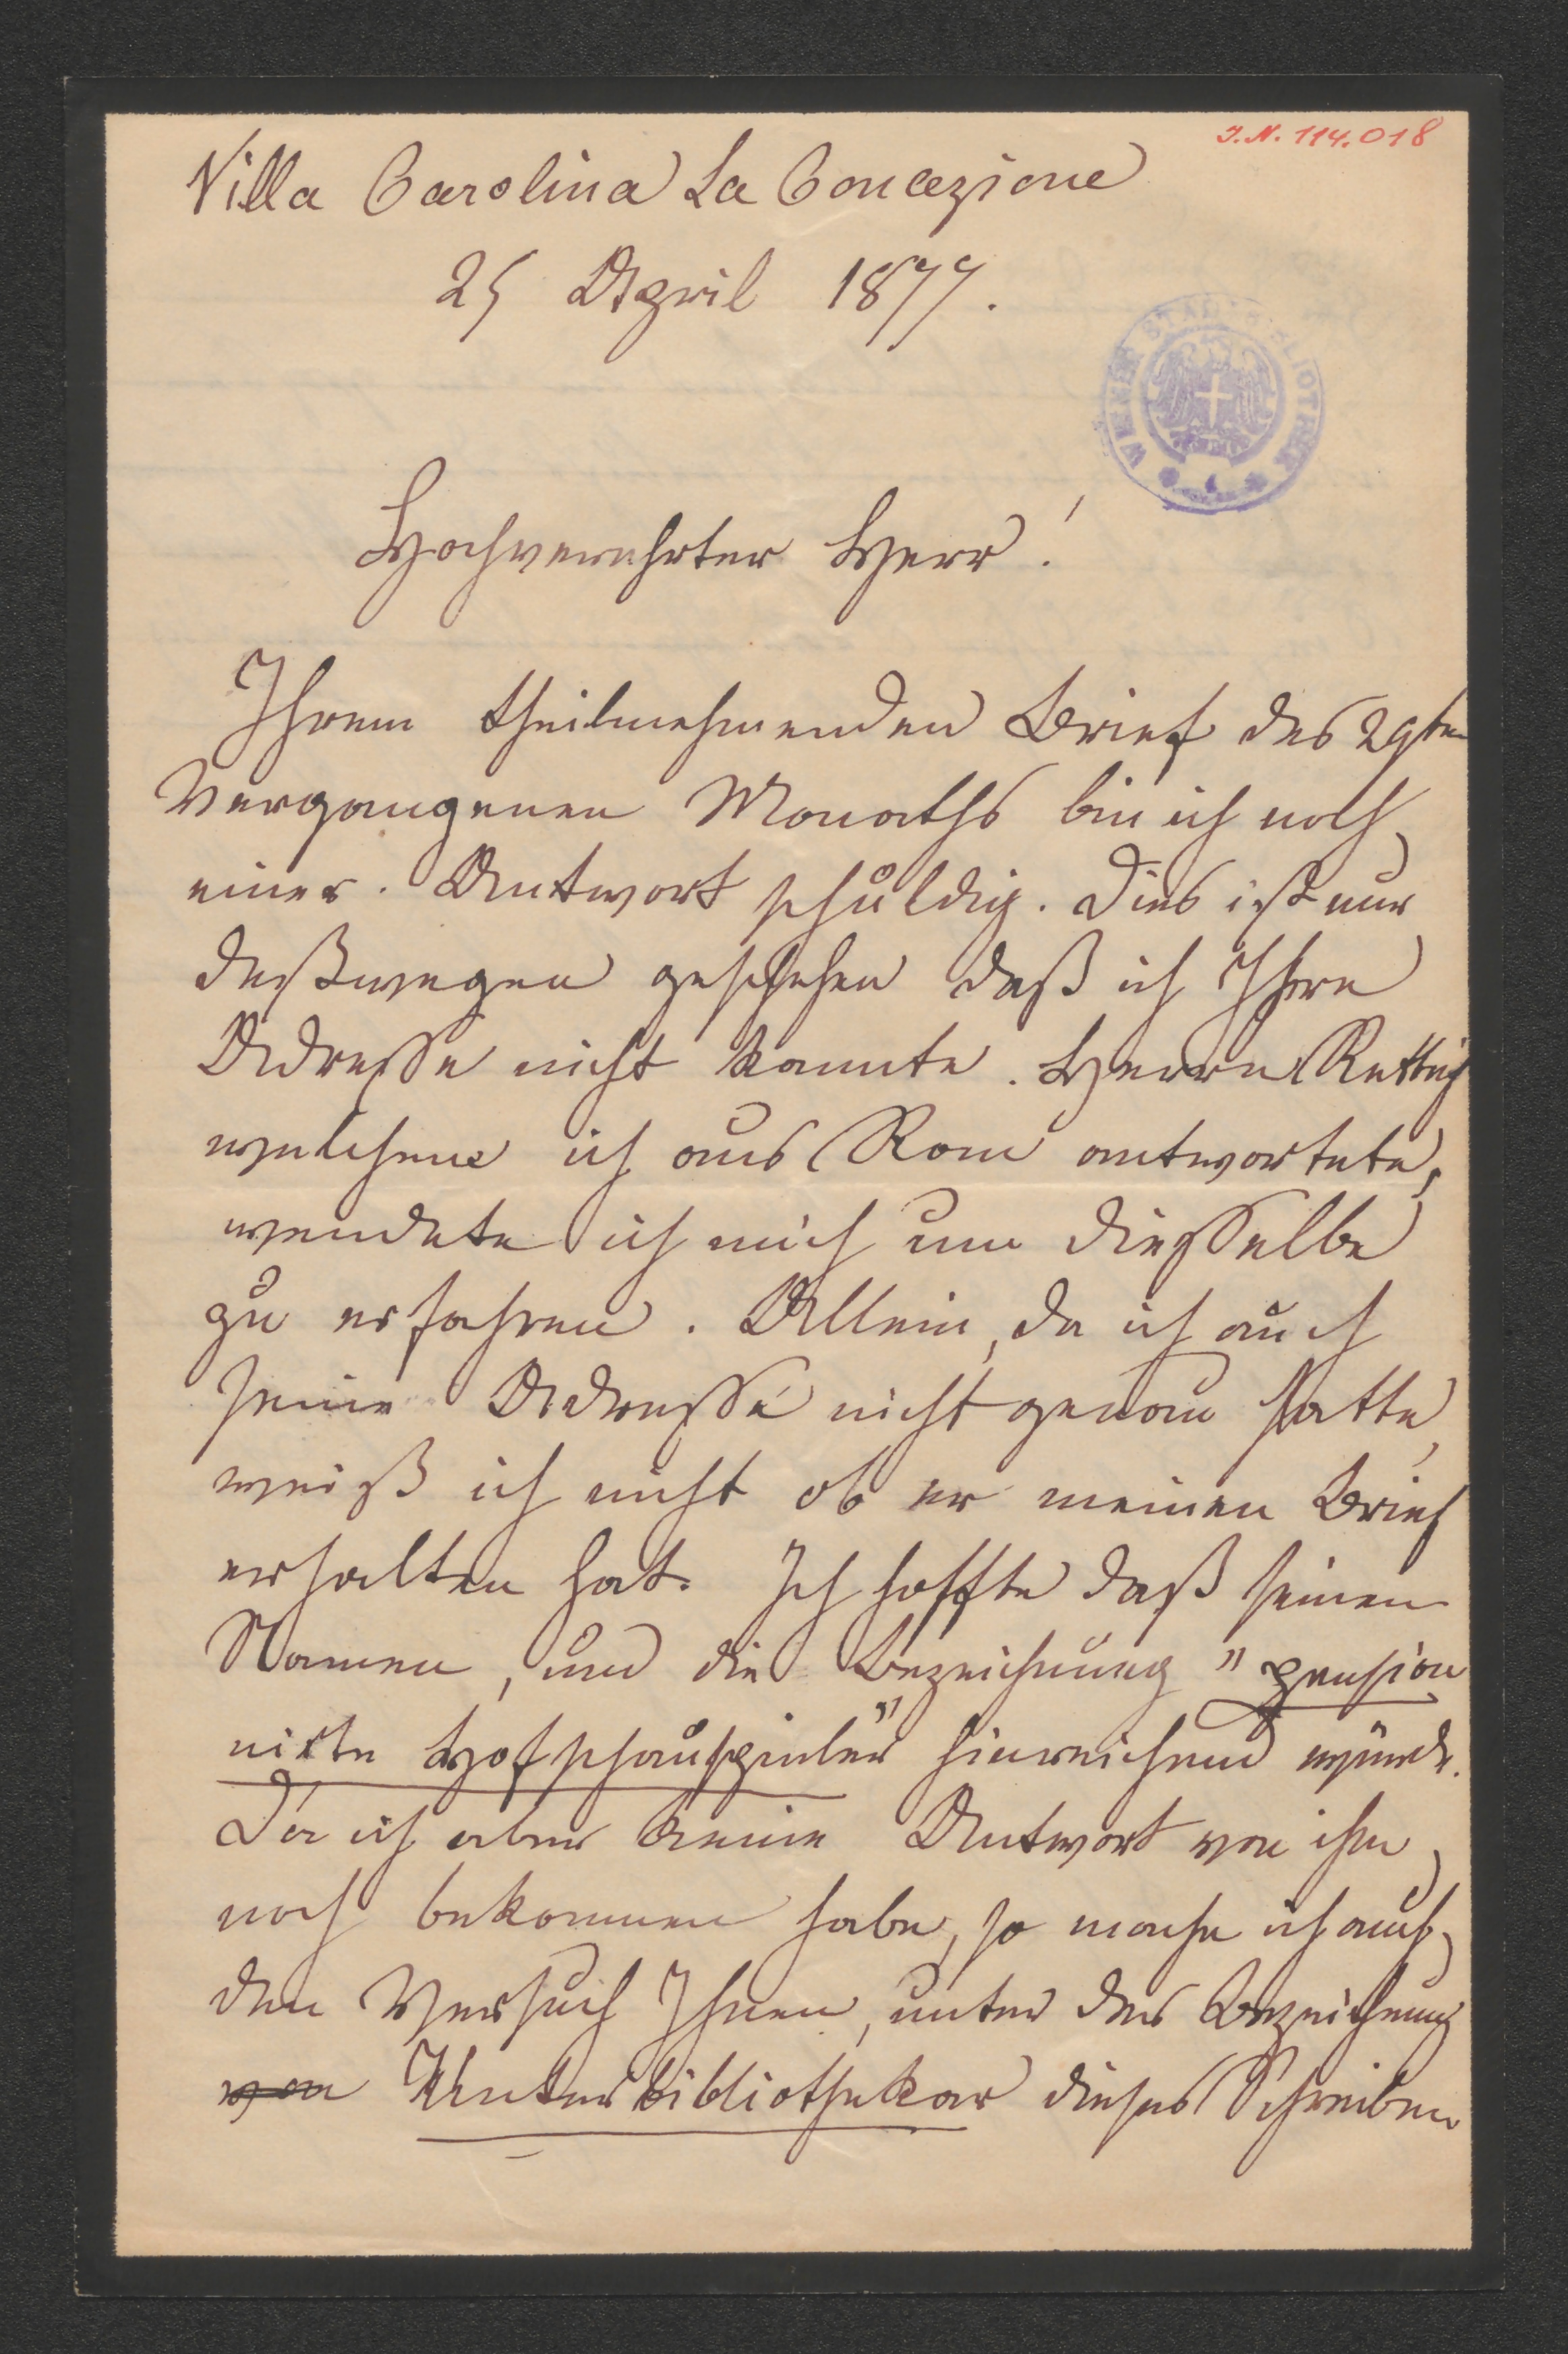 I.N. 114.018
Villa Carolina La Concezione
25 April 1877.
WIENER STADTBIBLIOTHEK
Hochverehrter Herr!
Ihrem theilnehmenden Brief des 29ten
vergangenen Monaths bin ich noch
einer Antwort schuldig. Dies ist nur
deßwegen geschehen daß ich Ihre
Adresse nicht kannte. Herrn Rettich
welchem ich aus Rom antwortete,
wendete ich mich um diesselbe
zu erfahren. Allein, da ich auch
seine Adresse nicht genau hatte,
weiß ich nicht ob er meinen Brief
erhalten hat. Ich hoffte daß seinen
Namen, und die Bezeichnung "pension
nirte Hofschauspieler" hinreichend würde.
Da ich aber keine Antwort von ihm
noch bekommen habe, so mache ich auch
den Versuch Ihnen, unter der Bezeichnung
von Unterbibliothekar dieses Schreiben